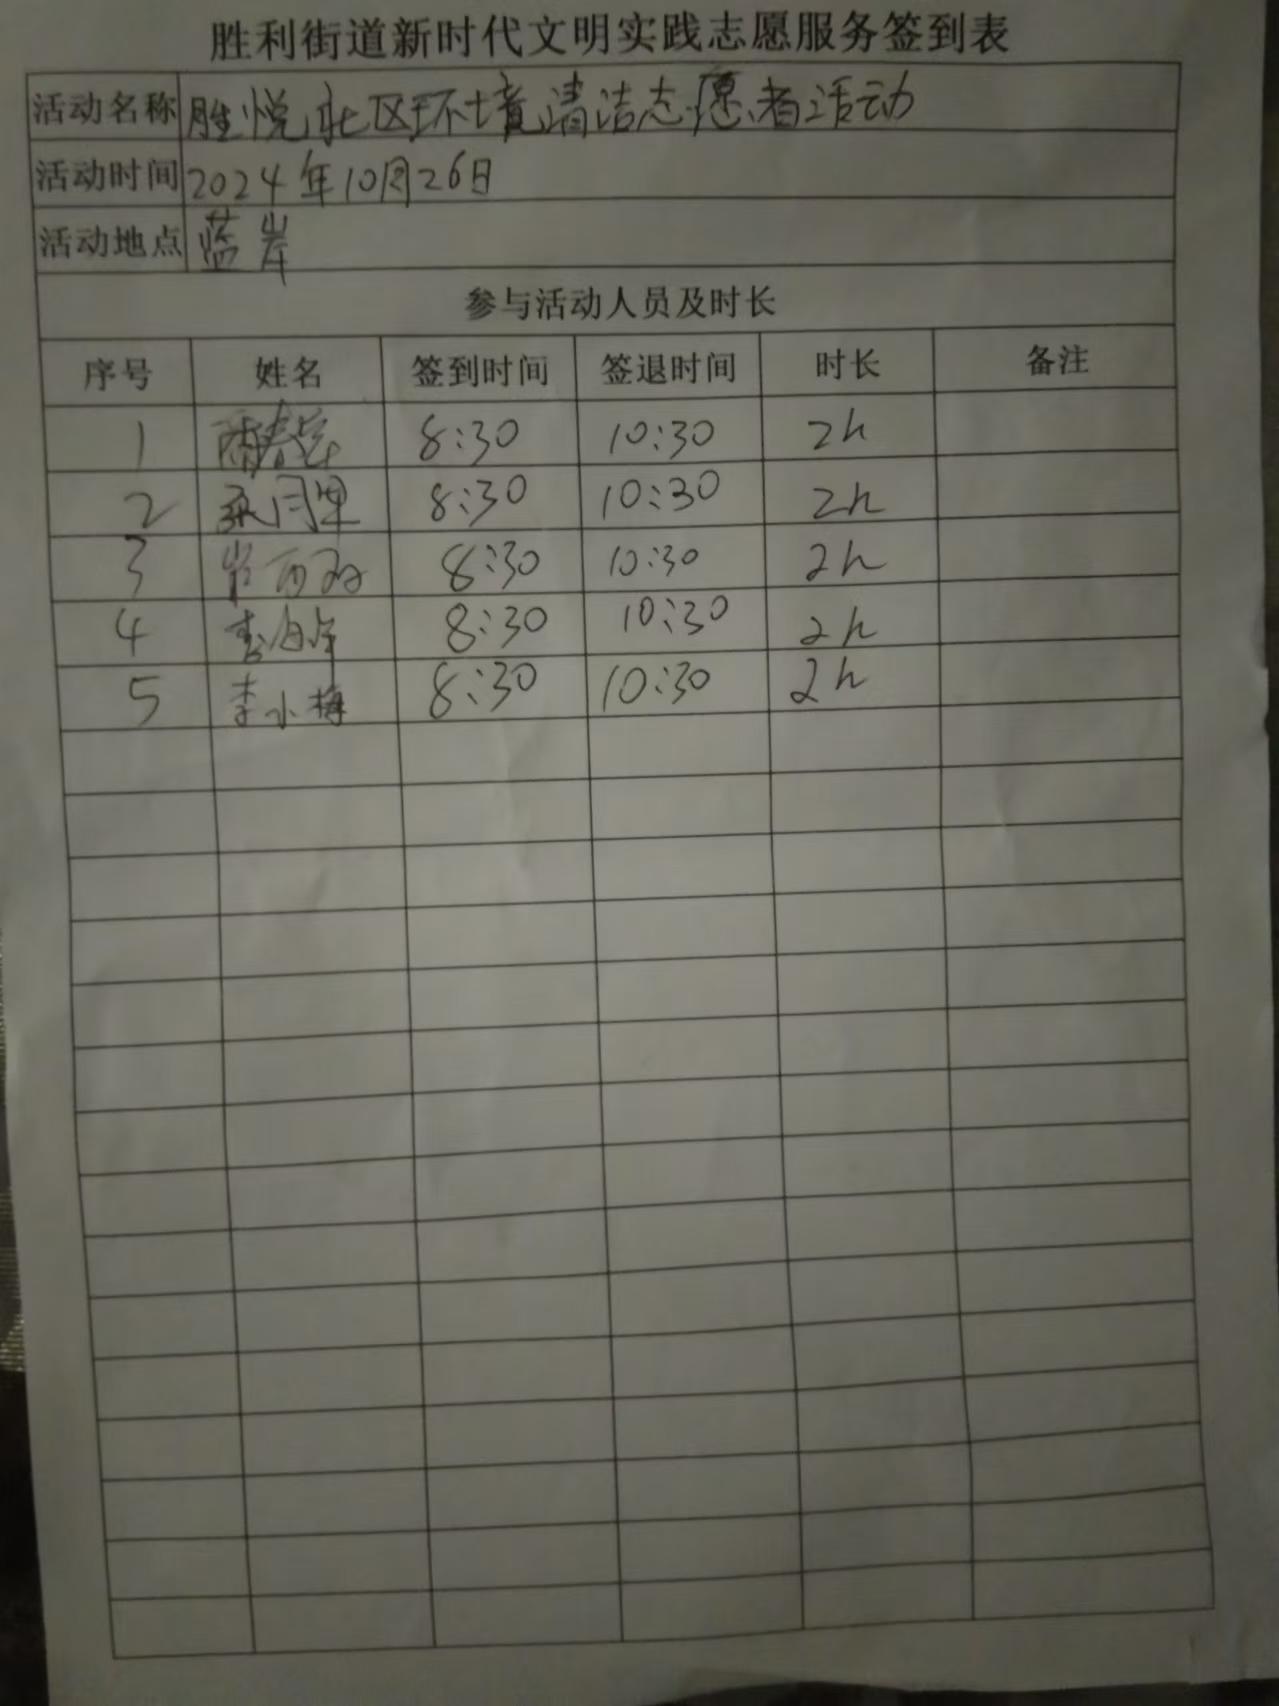 胜利街道新时代文明实践志愿服务签到表
活动名称 胜悦北区环境清洁志愿者活动
活动时间 2024年10月26日
活动地点 蓝岸
参与活动人员及时长
序号 姓名 签到时间 签退时间 时长 备注
1 8:30 10:30 2h
2 8:30 10:30 2h
3 8:30 10:30 2h
4 8:30 10:30 2h
5 李小梅 8:30 10:30 2h